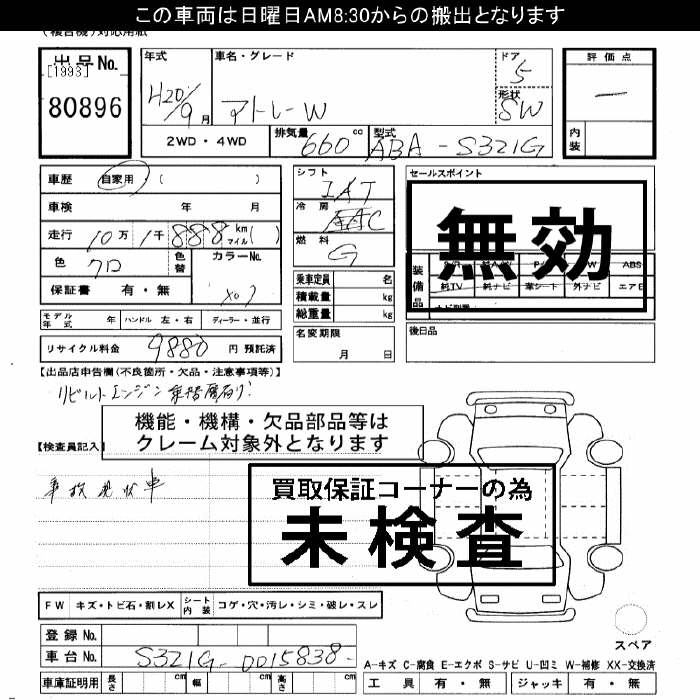 この車両は日曜日AM8:30からの搬出となります
(複合機)対応用紙
出品No. 年式 車名・グレード ドア 評価点
[1993] 5
80896 H20/9月 アトレーW 形状 SW 一
2WD・4WD 排気量 660 cc 型式 ABA-S321G 内装
車歴 自家用 ( ) シフト IAT セールスポイント
車検 年 月 冷房 AAC
無効
走行 10万1千888 km マイル ( ) 燃料 G
色 クロ 色替 カラーNo. X07
乗車定員 名 装備品 S/R P/S P/W ABS
保証書 有・無 積載量 kg 純TV 純ナビ 革シート 外ナビ エアB
総重量 kg
モデル年式 年 ハンドル 左・右 ディーラー・並行 名変期限 月 日 後日品
リサイクル料金 9880 円 預託済
【出品店申告欄(不良箇所・欠品・注意事項等)】
リビルトエンジン乗替歴有り!
機能・機構・欠品部品等は
クレーム対象外となります
【検査員記入】
事故現状車
買取保証コーナーの為
未検査
FW キズ・トビ石・割レX シート内装 コゲ・穴・汚レ・シミ・破レ・スレ
登録No.
スペア
車台No. S321G-0015838-
A-キズ C-腐食 E-エクボ S-サビ U-凹ミ W-補修 XX-交換済
車庫証明用 長さ cm 幅 cm 高さ cm 工具 有・無 ジャッキ 有・無